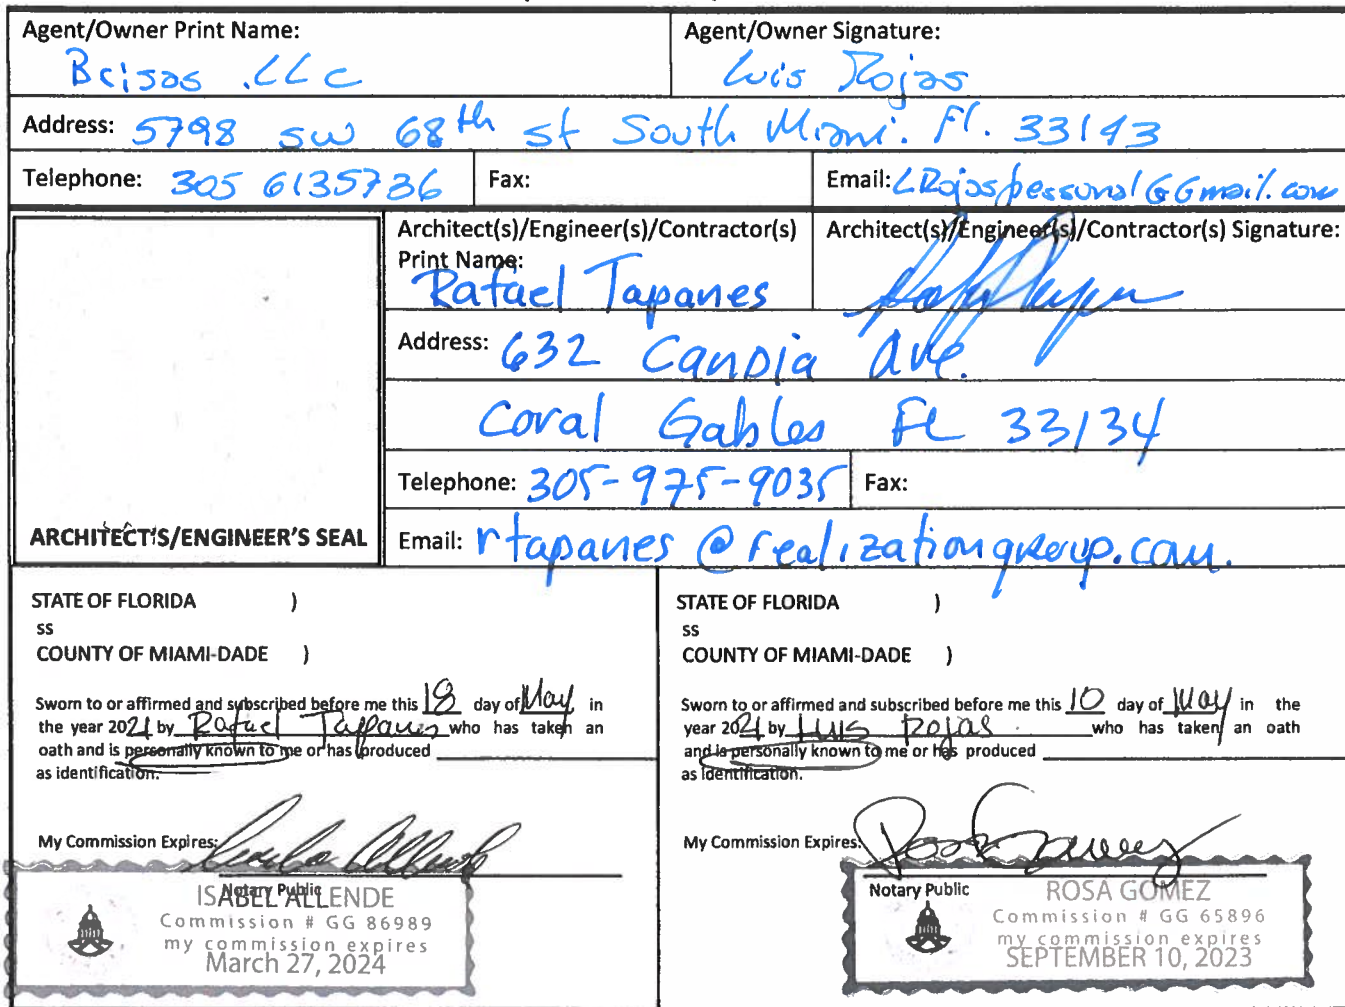 Agent/Owner Print Name:
Brisas .LLc
Agent/Owner Signature:
Luis Rojas
Address: 5798 sw 68th st South Miami. Fl. 33143
Telephone: 305 6135736
Fax:
Email: LRojaspersonal@Gmail.com
Architect(s)/Engineer(s)/Contractor(s)
Print Name:
Rafael Tapanes
Architect(s)/Engineer(s)/Contractor(s) Signature:
Address: 632 Candia Ave.
Coral Gables FL 33134
Telephone: 305-975-9035
Fax:
ARCHITECT'S/ENGINEER'S SEAL
Email: rtapanes@realizationgroup.com.
STATE OF FLORIDA )
ss
COUNTY OF MIAMI-DADE )
Sworn to or affirmed and subscribed before me this 18 day of May in
the year 2021 by Rafael Tappanes who has taken an
oath and is personally known to me or has produced
as identification.
My Commission Expires:
Notary Public
ISABEL ALLENDE
Commission # GG 86989
my commission expires
March 27, 2024
STATE OF FLORIDA )
ss
COUNTY OF MIAMI-DADE )
Sworn to or affirmed and subscribed before me this 10 day of May in the
year 2021 by Luis Rojas who has taken an oath
and is personally known to me or has produced
as identification.
My Commission Expires:
Notary Public
ROSA GOMEZ
Commission # GG 65896
my commission expires
SEPTEMBER 10, 2023